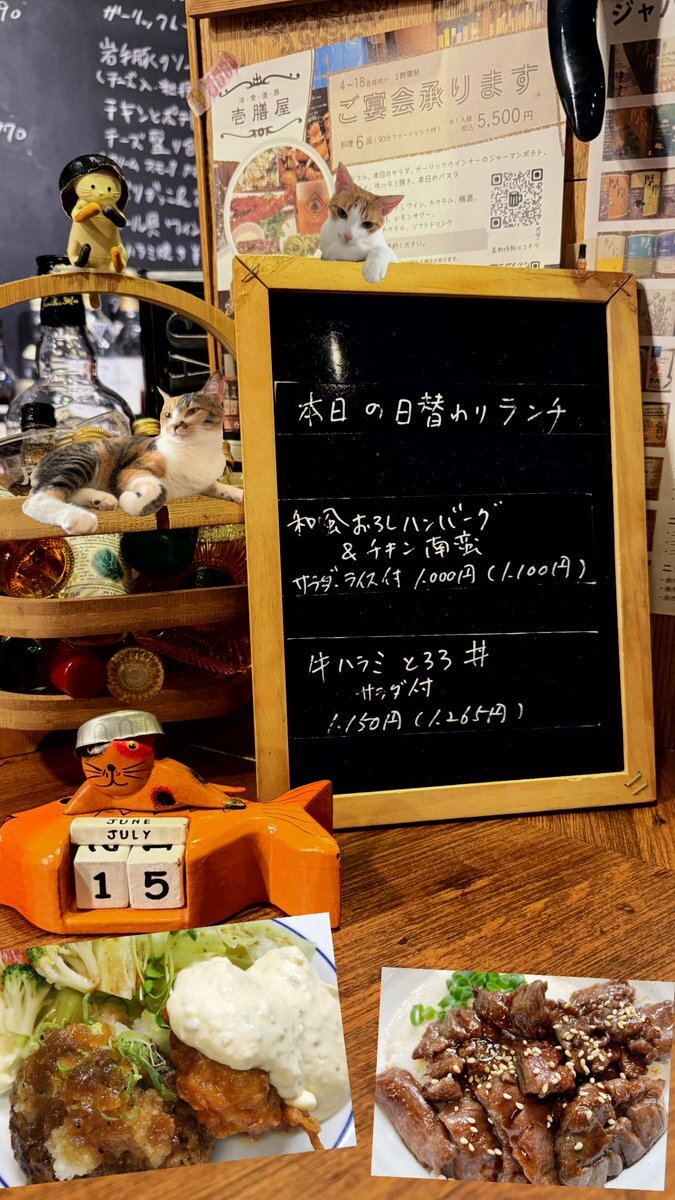 ガーリックレ
岩手豚
チキンとポテ
チーズ盛り
洋・食・酒・房
壱膳屋
4〜18名様向け 2時間制
ご宴会承ります
料理6品(90分フリードリンク付)
お1人様
税込 5,500円
本日のサラダ、ガーリックウインナーのジャーマンポテト、
牛ハラミ焼き、本日のパスタ
ワイン、カクテル、梅酒、
レモンサワー、
カクテル、ソフトドリンク
最新情報はコチラ
ジャパ
本日の日替わりランチ
和風おろしハンバーグ
&チキン南蛮
サラダ・ライス付 1,000円(1,100円)
牛ハラミとろろ丼
サラダ付
1,150円(1,265円)
JUNE
JULY
1 5